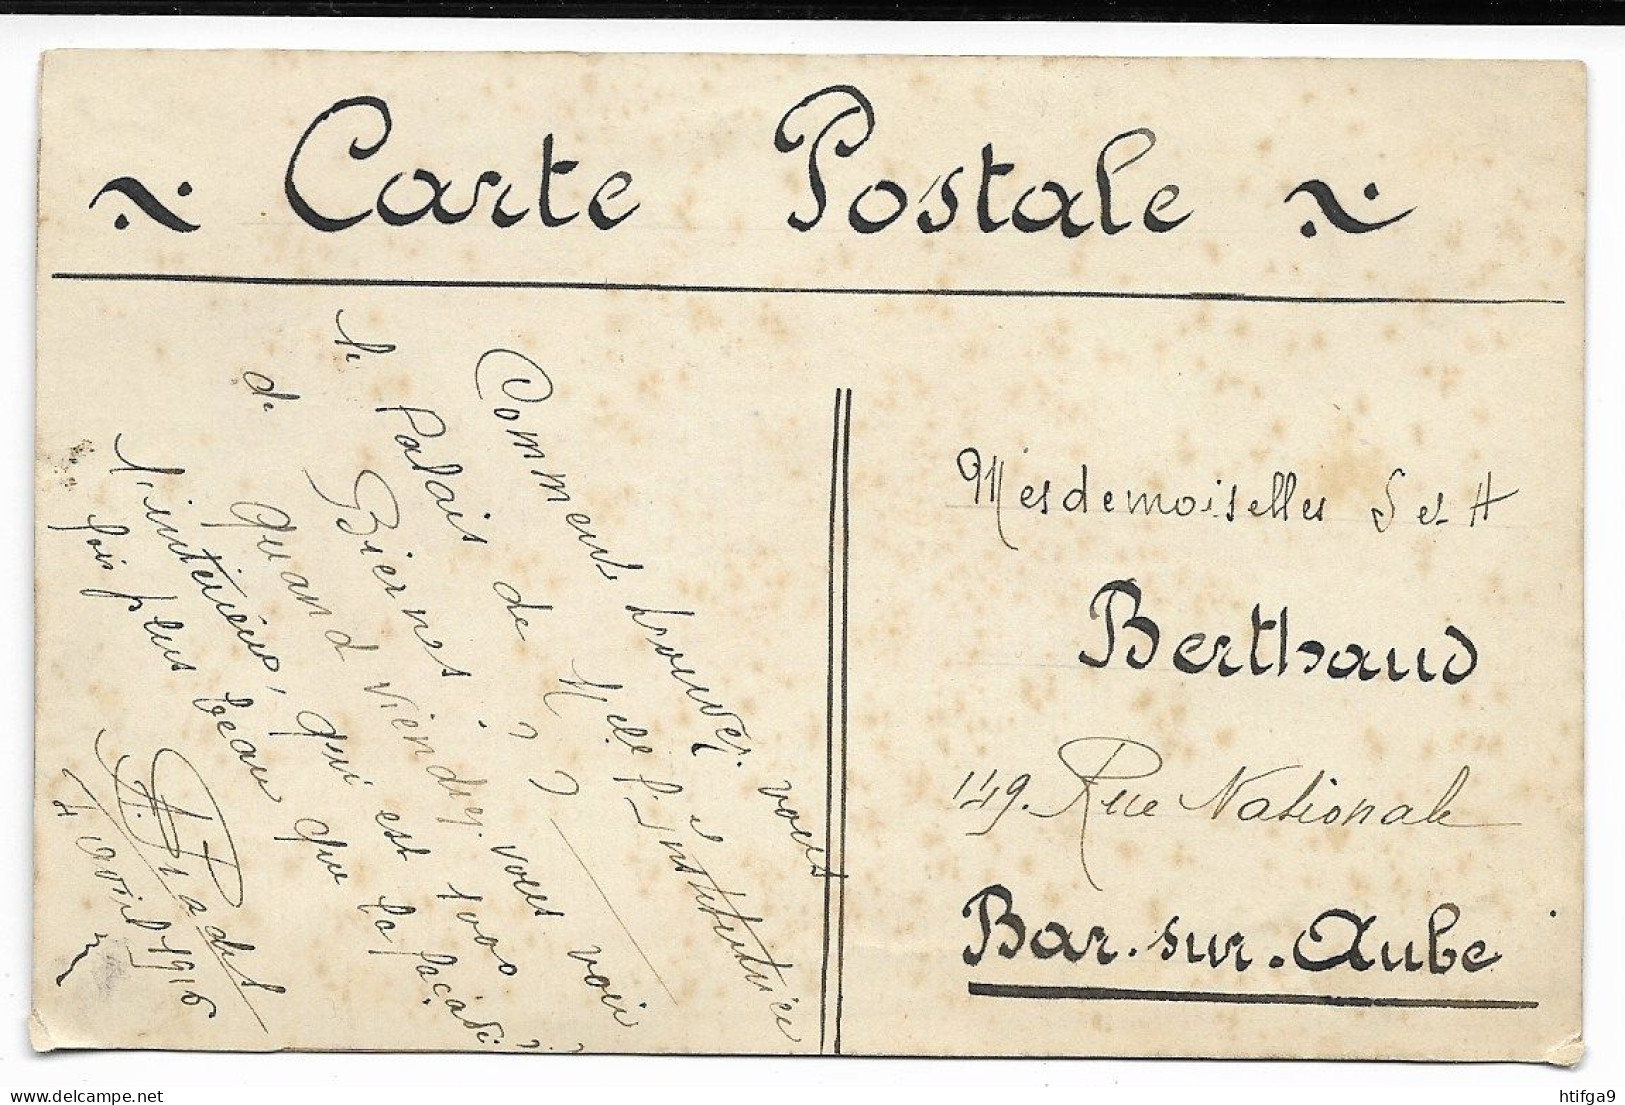 Carte Postale
Comment trouvez vous
le Palais de Melle l'institutrice
de Biernes. ? ?
quand viendrez vous voir
l'intérieur, qui est 1000
fois plus beau que la façade ?
A. Pradet
4 avril 1916
Mesdemoiselles S et H
Berthaud
149. Rue Nationale
Bar-sur-Aube
Delcampe.net
htifga9